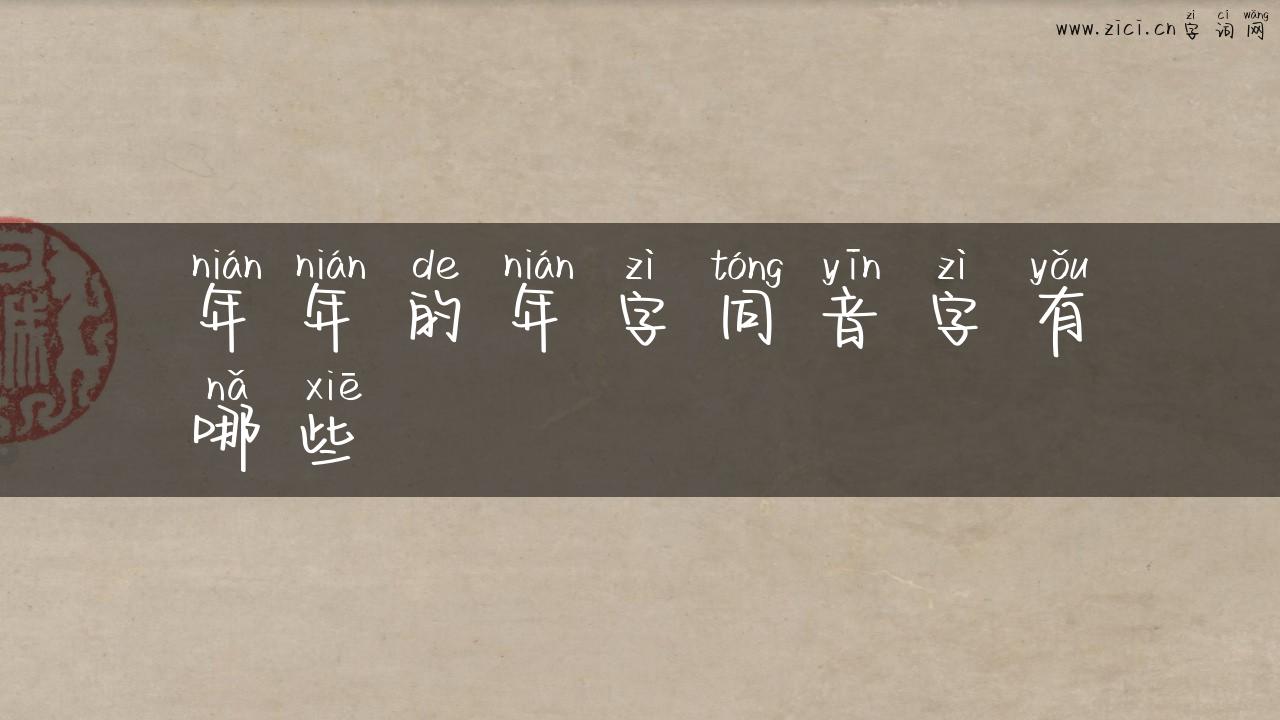 zì cí wǎng
www.zici.cn 字 词 网
nián nián de nián zì tóng yīn zì yǒu
年 年 的 年 字 同 音 字 有
nǎ xiē
哪 些